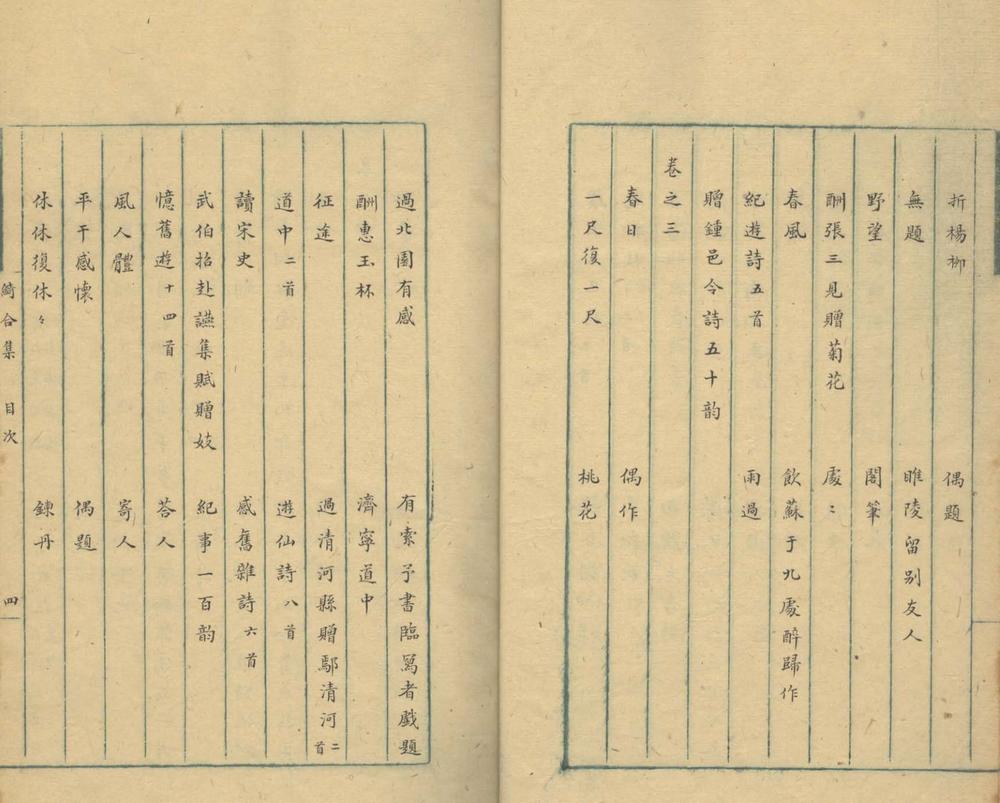 折楊柳 偶題
無題 睢陵留别友人
野望 閣筆
酬張三見贈菊花 處〻
春風 飲蘇于九處醉歸作
紀遊詩五首 雨過
贈鍾邑令詩五十韵
卷之三
春日 偶作
一尺復一尺 桃花
過北園有感 有索予書臨寫者戲題
酬惠玉杯 濟寧道中
征途 過清河縣贈鄢清河二首
道中二首 遊仙詩八首
讀宋史 感舊雜詩六首
武伯招赴讌集賦贈妓 紀事一百韵
憶舊遊十四首 荅人
風人體 寄人
平干感懷 偶題
休休復休々 鍊丹
綺合集 目次 四